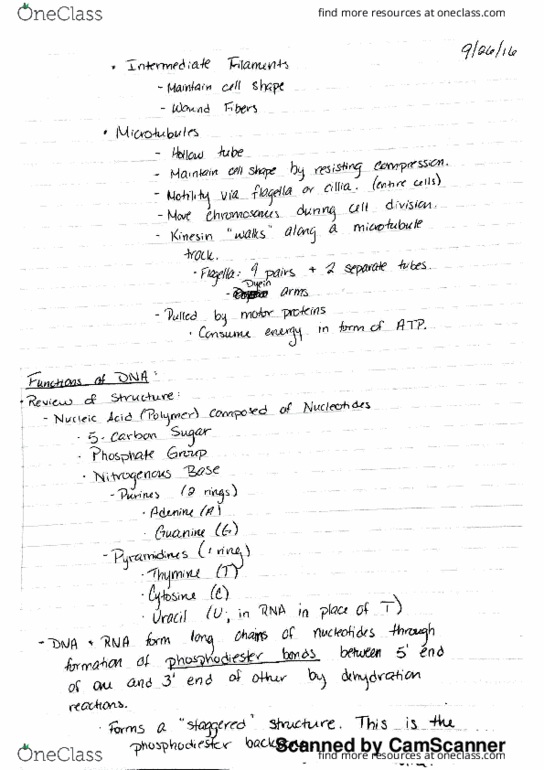 OneClass
find more resources at oneclass.com
find more resources at oneclass.com
9/26/16
• Intermediate Filaments
- Maintain cell shape
- Wound Fibers
• Microtubules
- Hollow tube
- Maintain cell shape by resisting compression.
- Motility via flagella or cillia. (entire cells)
- Move chromosomes during cell division.
- Kinesin "walks" along a microtubule
track.
• Flagella: 9 pairs + 2 separate tubes.
Dyein
- arms
- Pulled by motor proteins
• Consume energy in form of ATP.
Functions of DNA:
• Review of Structure:
- Nucleic Acid (Polymer) composed of Nucleotides
• 5-Carbon Sugar
• Phosphate Group
• Nitrogenous Base
- Purines (2 rings)
• Adenine (A)
• Guanine (G)
- Pyramidines (1 ring)
• Thymine (T)
• Cytosine (C)
• Uracil (U; in RNA in place of T)
- DNA + RNA form long chains of nucleotides through
formation of phosphodiester bonds between 5' end
of one and 3' end of other by dehydration
reactions.
• Forms a "staggered" structure. This is the
phosphodiester
Scanned by CamScanner
OneClass
find more resources at oneclass.com
find more resources at oneclass.com